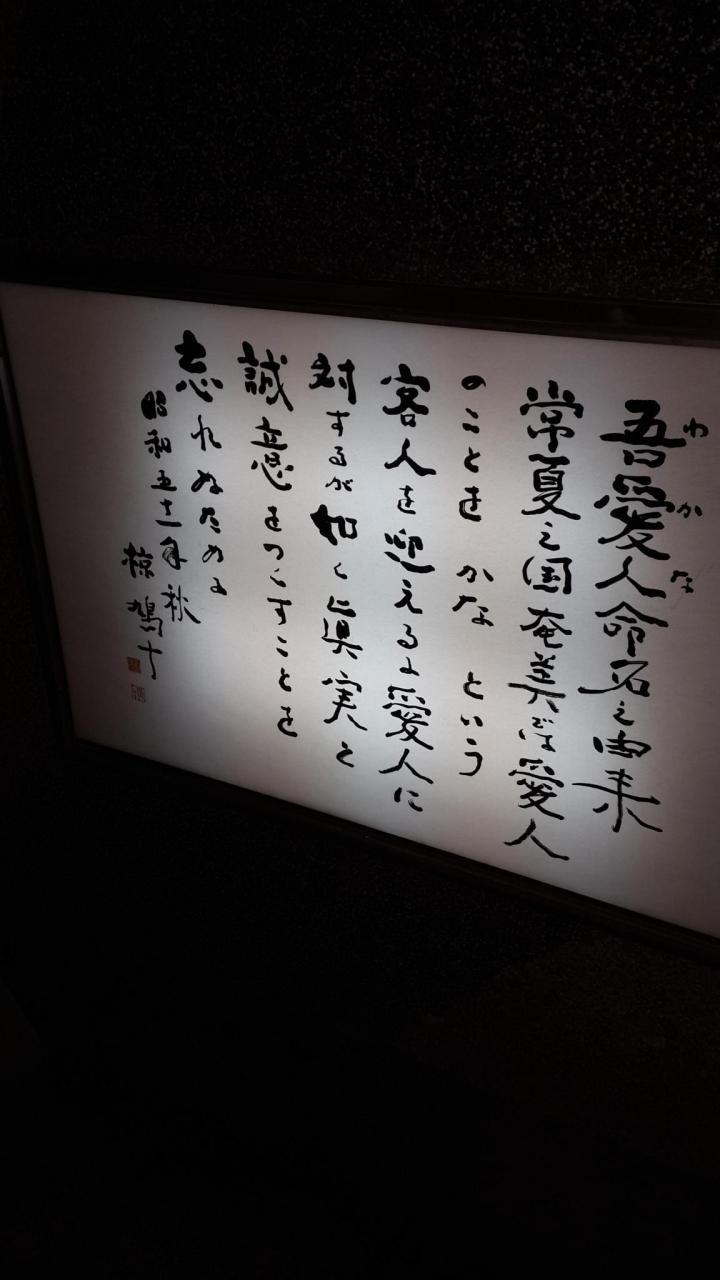 吾愛人命名之由来
わかな
常夏之国奄美では愛人
のことを かな という
客人を迎えるに愛人に
対するが如く真実と
誠意をつくすことを
忘れぬために
昭和五十一年秋
椋鳩十